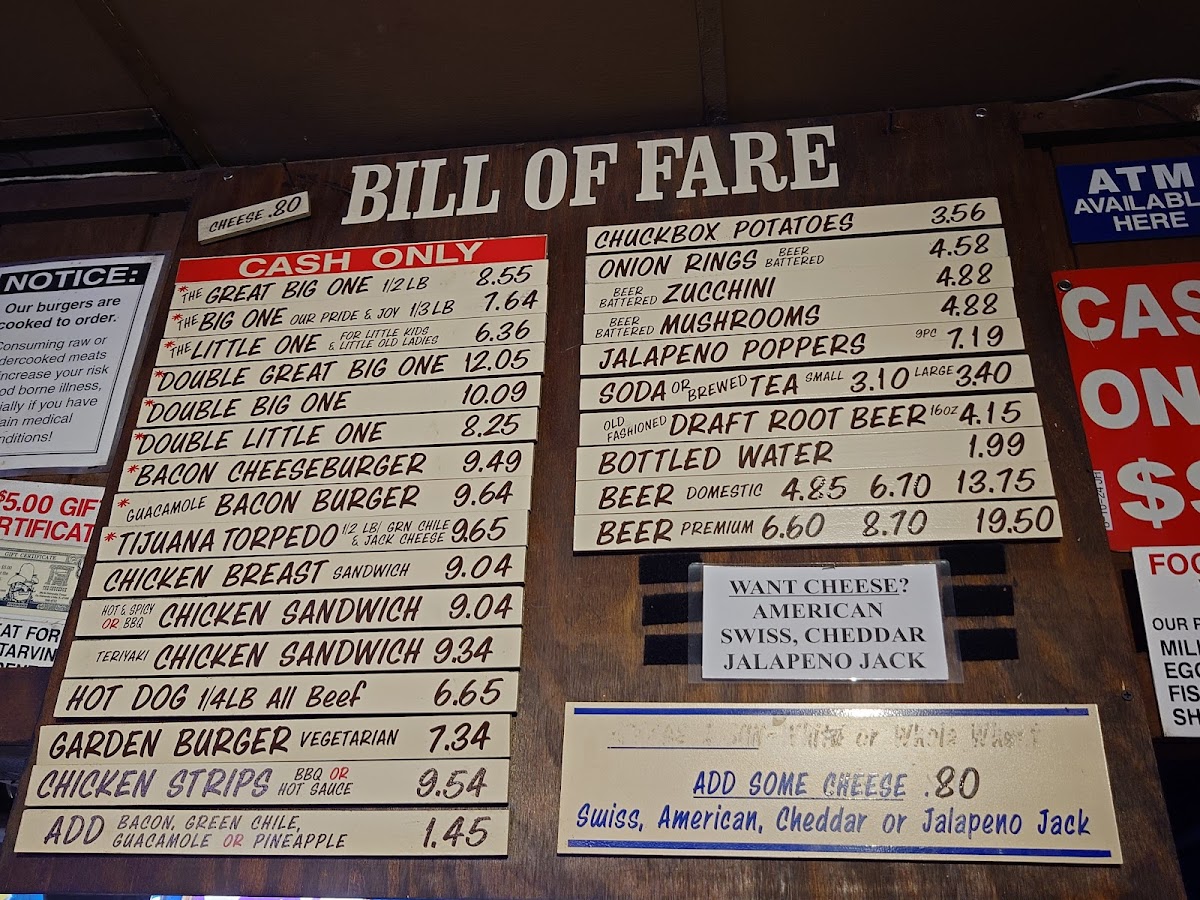 BILL OF FARE
CHEESE .80
CASH ONLY
*THE GREAT BIG ONE 1/2 LB 8.55
*THE BIG ONE OUR PRIDE & JOY 1/3 LB 7.64
*THE LITTLE ONE FOR LITTLE KIDS & LITTLE OLD LADIES 6.36
*DOUBLE GREAT BIG ONE 12.05
*DOUBLE BIG ONE 10.09
*DOUBLE LITTLE ONE 8.25
*BACON CHEESEBURGER 9.49
*GUACAMOLE BACON BURGER 9.64
*TIJUANA TORPEDO 1/2 LB/ GRN CHILE & JACK CHEESE 9.65
CHICKEN BREAST SANDWICH 9.04
HOT & SPICY OR BBQ CHICKEN SANDWICH 9.04
TERIYAKI CHICKEN SANDWICH 9.34
HOT DOG 1/4LB All Beef 6.65
GARDEN BURGER VEGETARIAN 7.34
CHICKEN STRIPS BBQ OR HOT SAUCE 9.54
ADD BACON, GREEN CHILE, GUACAMOLE OR PINEAPPLE 1.45
CHUCKBOX POTATOES 3.56
ONION RINGS BEER BATTERED 4.58
BEER BATTERED ZUCCHINI 4.88
BEER BATTERED MUSHROOMS 4.88
JALAPENO POPPERS 9PC 7.19
SODA OR BREWED TEA SMALL 3.10 LARGE 3.40
OLD FASHIONED DRAFT ROOT BEER 16oz 4.15
BOTTLED WATER 1.99
BEER DOMESTIC 4.85 6.70 13.75
BEER PREMIUM 6.60 8.70 19.50
WANT CHEESE?
AMERICAN
SWISS, CHEDDAR
JALAPENO JACK
or Whole Wheat
ADD SOME CHEESE .80
Swiss, American, Cheddar or Jalapeno Jack
NOTICE:
Our burgers are
cooked to order.
Consuming raw or
dercooked meats
increase your risk
od borne illness,
ially if you have
ain medical
nditions!
$5.00 GIF
RTIFICAT
GIFT CERTIFICATE
EAT FOR
TARVIN
ATM
AVAILABL
HERE
CAS
ON
$
FOO
OUR F
MIL
EGG
FIS
SH